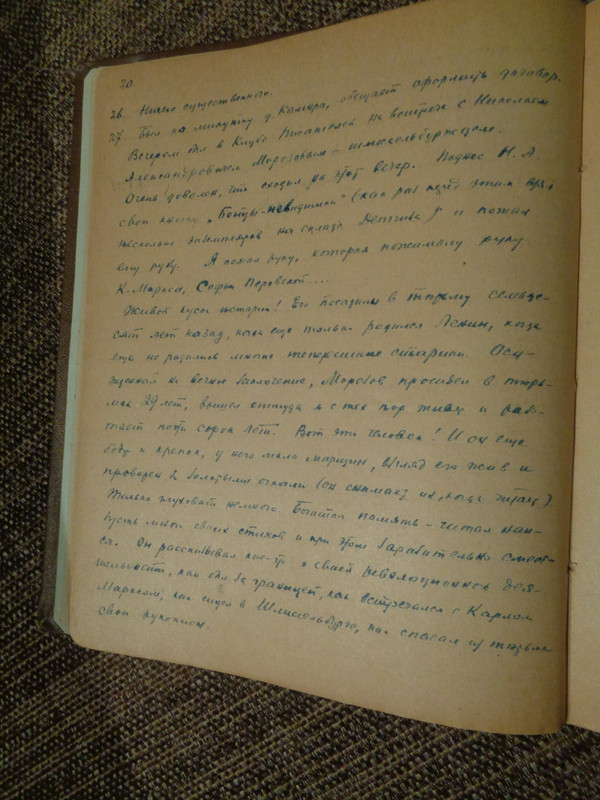 20
26. Ничего существенного.
27 Был на минутку у Кантора, обещает оформить договор.
Вечером был в Клубе Писателей на встрече с Николаем
Александровичем Морозовым – шлиссельбуржцем.
Очень доволен, что сходил на этот вечер. Поднес Н. А.
свою книгу „Бойцы-невидимки" (как раз перед этим взял
несколько экземпляров на складе Детгиза) и пожал
ему руку. Я пожал руку, которая пожимала руку
К. Маркса, Софьи Перовской....
Живой кусок истории! Его посадили в тюрьму семьде-
сят лет назад, когда еще только родился Ленин, когда
еще не родились многие теперешние старики. Осу-
жденный на вечное заключение, Морозов просидел в тюрь-
мах 29 лет, вышел оттуда и с тех пор живет и рабо-
тает почти сорок лет. Вот это человек! И он еще
бодр и крепок, у него мало морщин, взгляд его жив и
проворен за золотыми очками (он снимает их, когда читает).
Только глуховат немного. Богатая память – читал наи-
зусть много своих стихов и при этом заразительно смеял-
ся. Он рассказывал кое-что о своей революционной дея-
тельности, как был за границей, как встречался с Карлом
Марксом, как сидел в Шлиссельбурге, как спасал из тюрьмы
свои рукописи.